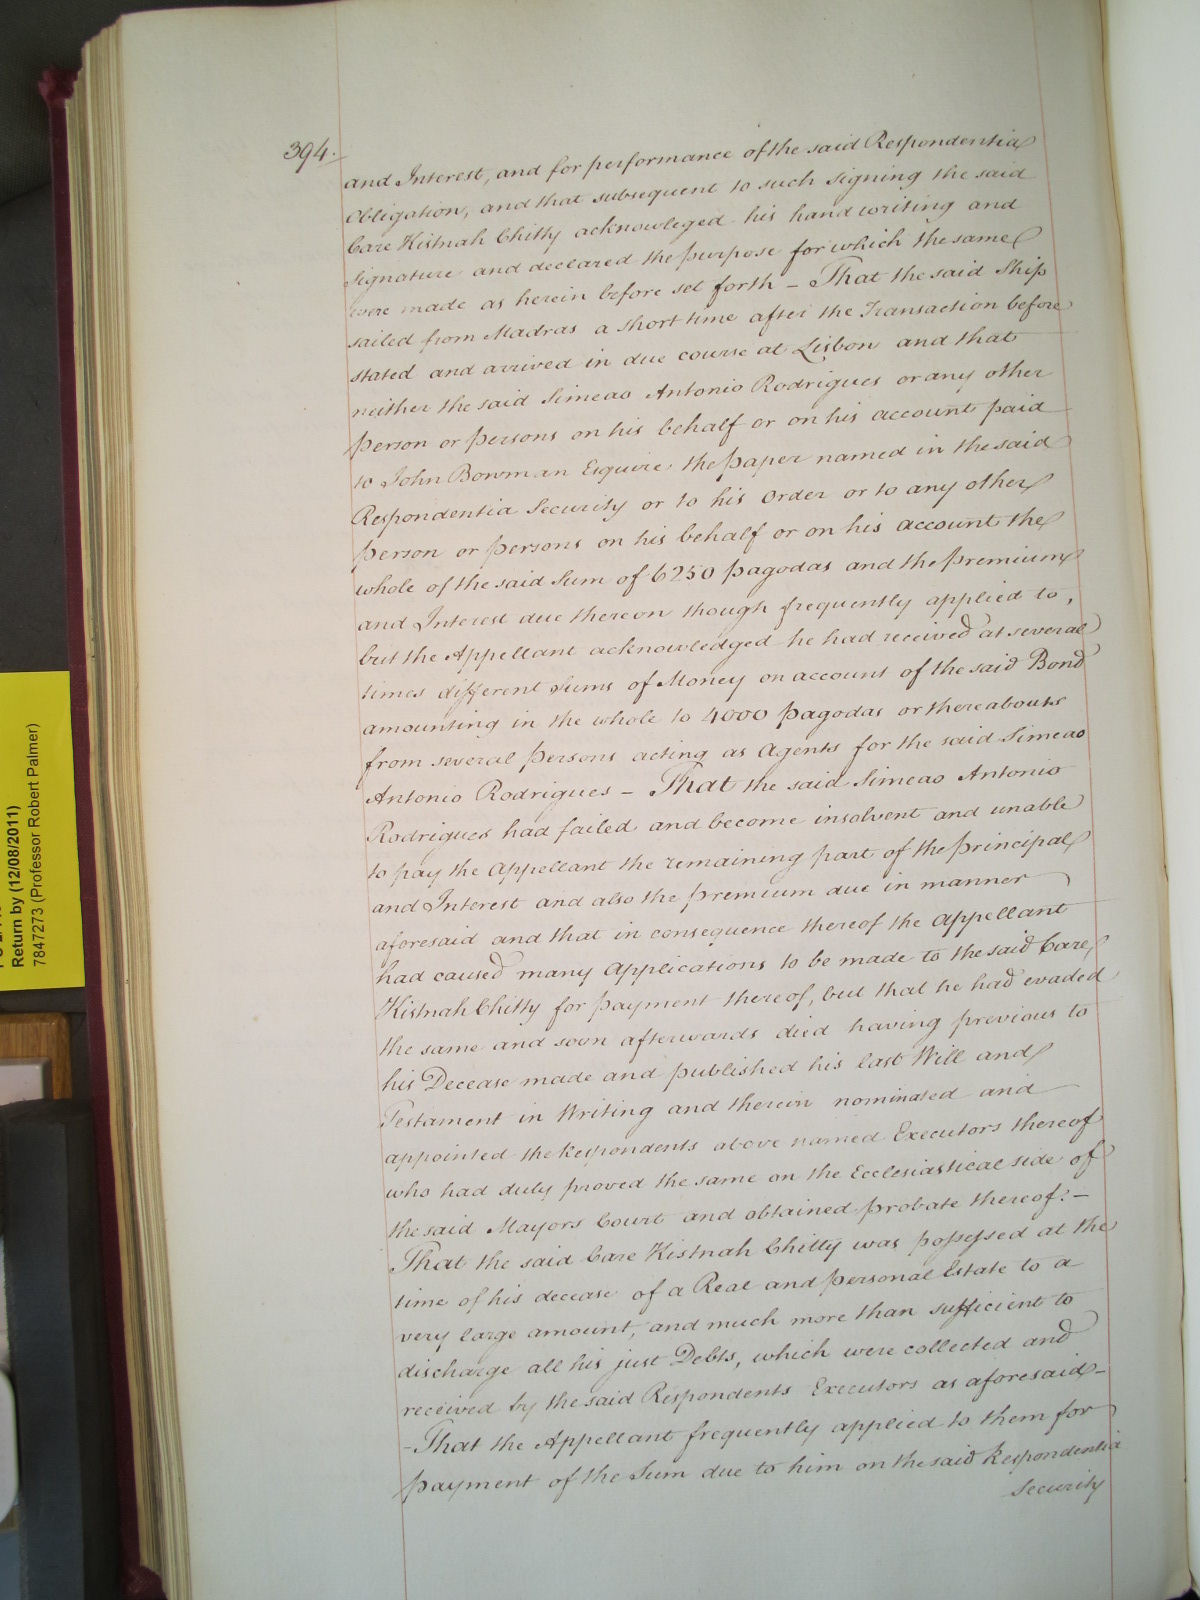 394.
and Interest, and for performance of the said Respondentia
Obligation, and that subsequent to such signing the said
Care Kistnah Chitty acknowleged his hand writing and
Signature and declared the purpose for which the same
were made as herein before set forth – That the said Ship
sailed from Madras a short time after the Transaction before
stated and arrived in due course at Lisbon and that
neither the said Simeao Antonio Rodrigues or any other
person or persons on his behalf or on his account paid
to John Bowman Esquire the paper named in the said
Respondentia Security or to his Order or to any other
person or persons on his behalf or on his account the
whole of the said Sum of 6250 pagodas and the premium
and Interest due thereon though frequently applied to,
but the Appellant acknowledged he had received at several
times different Sums of Money on account of the said Bond
amounting in the whole to 4000 pagodas or thereabouts
from several persons acting as Agents for the said Simeao
Antonio Rodrigues – That the said Simeao Antonio
Rodrigues had failed and become insolvent and unable
to pay the Appellant the remaining part of the principal
and Interest and also the premium due in manner
aforesaid and that in consequence thereof the Appellant
had caused many Applications to be made to the said Care
Kistnah Chitty for payment thereof, but that he had evaded
the same and soon afterwards died having previous to
his Decease made and published his last Will and
Testament in Writing and therein nominated and
appointed the Respondents above named Executors thereof
who had duly proved the same on the Ecclesiastical side of
the said Mayors Court and obtained probate thereof: –
That the said Care Kistnah Chitty was possessed at the
time of his decease of a Real and personal Estate to a
very large amount, and much more than sufficient to
discharge all his just Debts, which were collected and
received by the said Respondents Executors as aforesaid –
– That the Appellant frequently applied to them for
payment of the Sum due to him on the said Respondentia
Security
Return by (12/08/2011)
7847273 (Professor Robert Palmer)